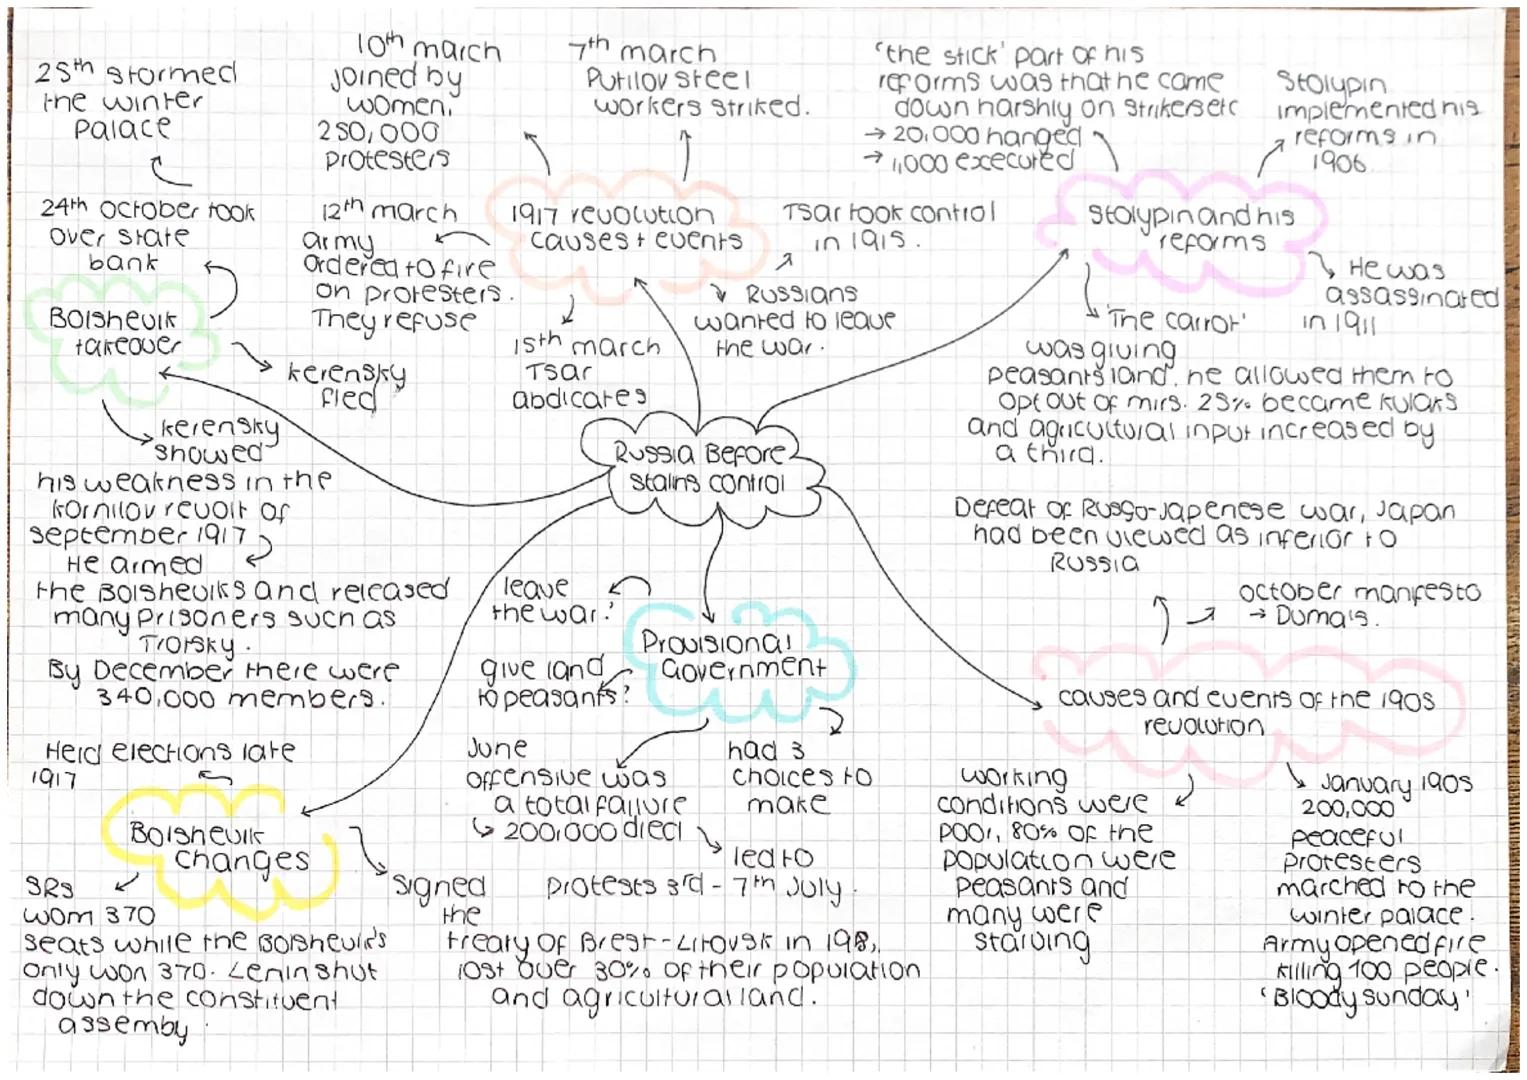 Russia Before
Stalins control
1917 revolution
causes + events
10th march
joined by
women,
250,000
protesters
7th march
Putilov steel
workers striked.
12th march
army
ordered to fire
on protesters.
They refuse
15th march
Tsar
abdicates
Tsar took control
in 1915.
Russians
wanted to leave
the war.
Stolypin and his
reforms
'the stick' part of his
reforms was that he came
down harshly on strikers etc
→ 20,000 hanged
→ 1,000 executed
Stolypin
implemented his
reforms in
1906.
He was
assassinated
in 1911
'The carrot'
was giving
peasants land. he allowed them to
opt out of mirs. 25% became kulaks
and agricultural input increased by
a third.
causes and events of the 1905
revolution
Defeat of Russo-Japenese war, Japan
had been viewed as inferior to
Russia
october manfesto
→ Duma's.
working
conditions were
poor, 80% of the
population were
peasants and
many were
starving
January 1905
200,000
peaceful
protesters
marched to the
winter palace.
Army opened fire
killing 100 people.
'Bloody sunday'
Provisional
Government
leave
the war?
give land
to peasants?
had 3
choices to
make
June
offensive was
a total failure
↳ 200,000 died
led to
protests 3rd - 7th July.
Bolshevik
changes
Held elections late
1917
SRs
wom 370
seats while the Bolshevik's
only won 370. Lenin shut
down the constituent
assemby.
signed
the
treaty of Brest-Litovsk in 1918,
lost over 30% of their population
and agricultural land.
Bolshevik
takeover
24th october took
over state
bank
25th stormed
the winter
palace
kerensky
fled
kerensky
showed
his weakness in the
Kornilov revolt of
september 1917
He armed
the Bolsheviks and released
many prisoners such as
Trotsky.
By December there were
340,000 members.